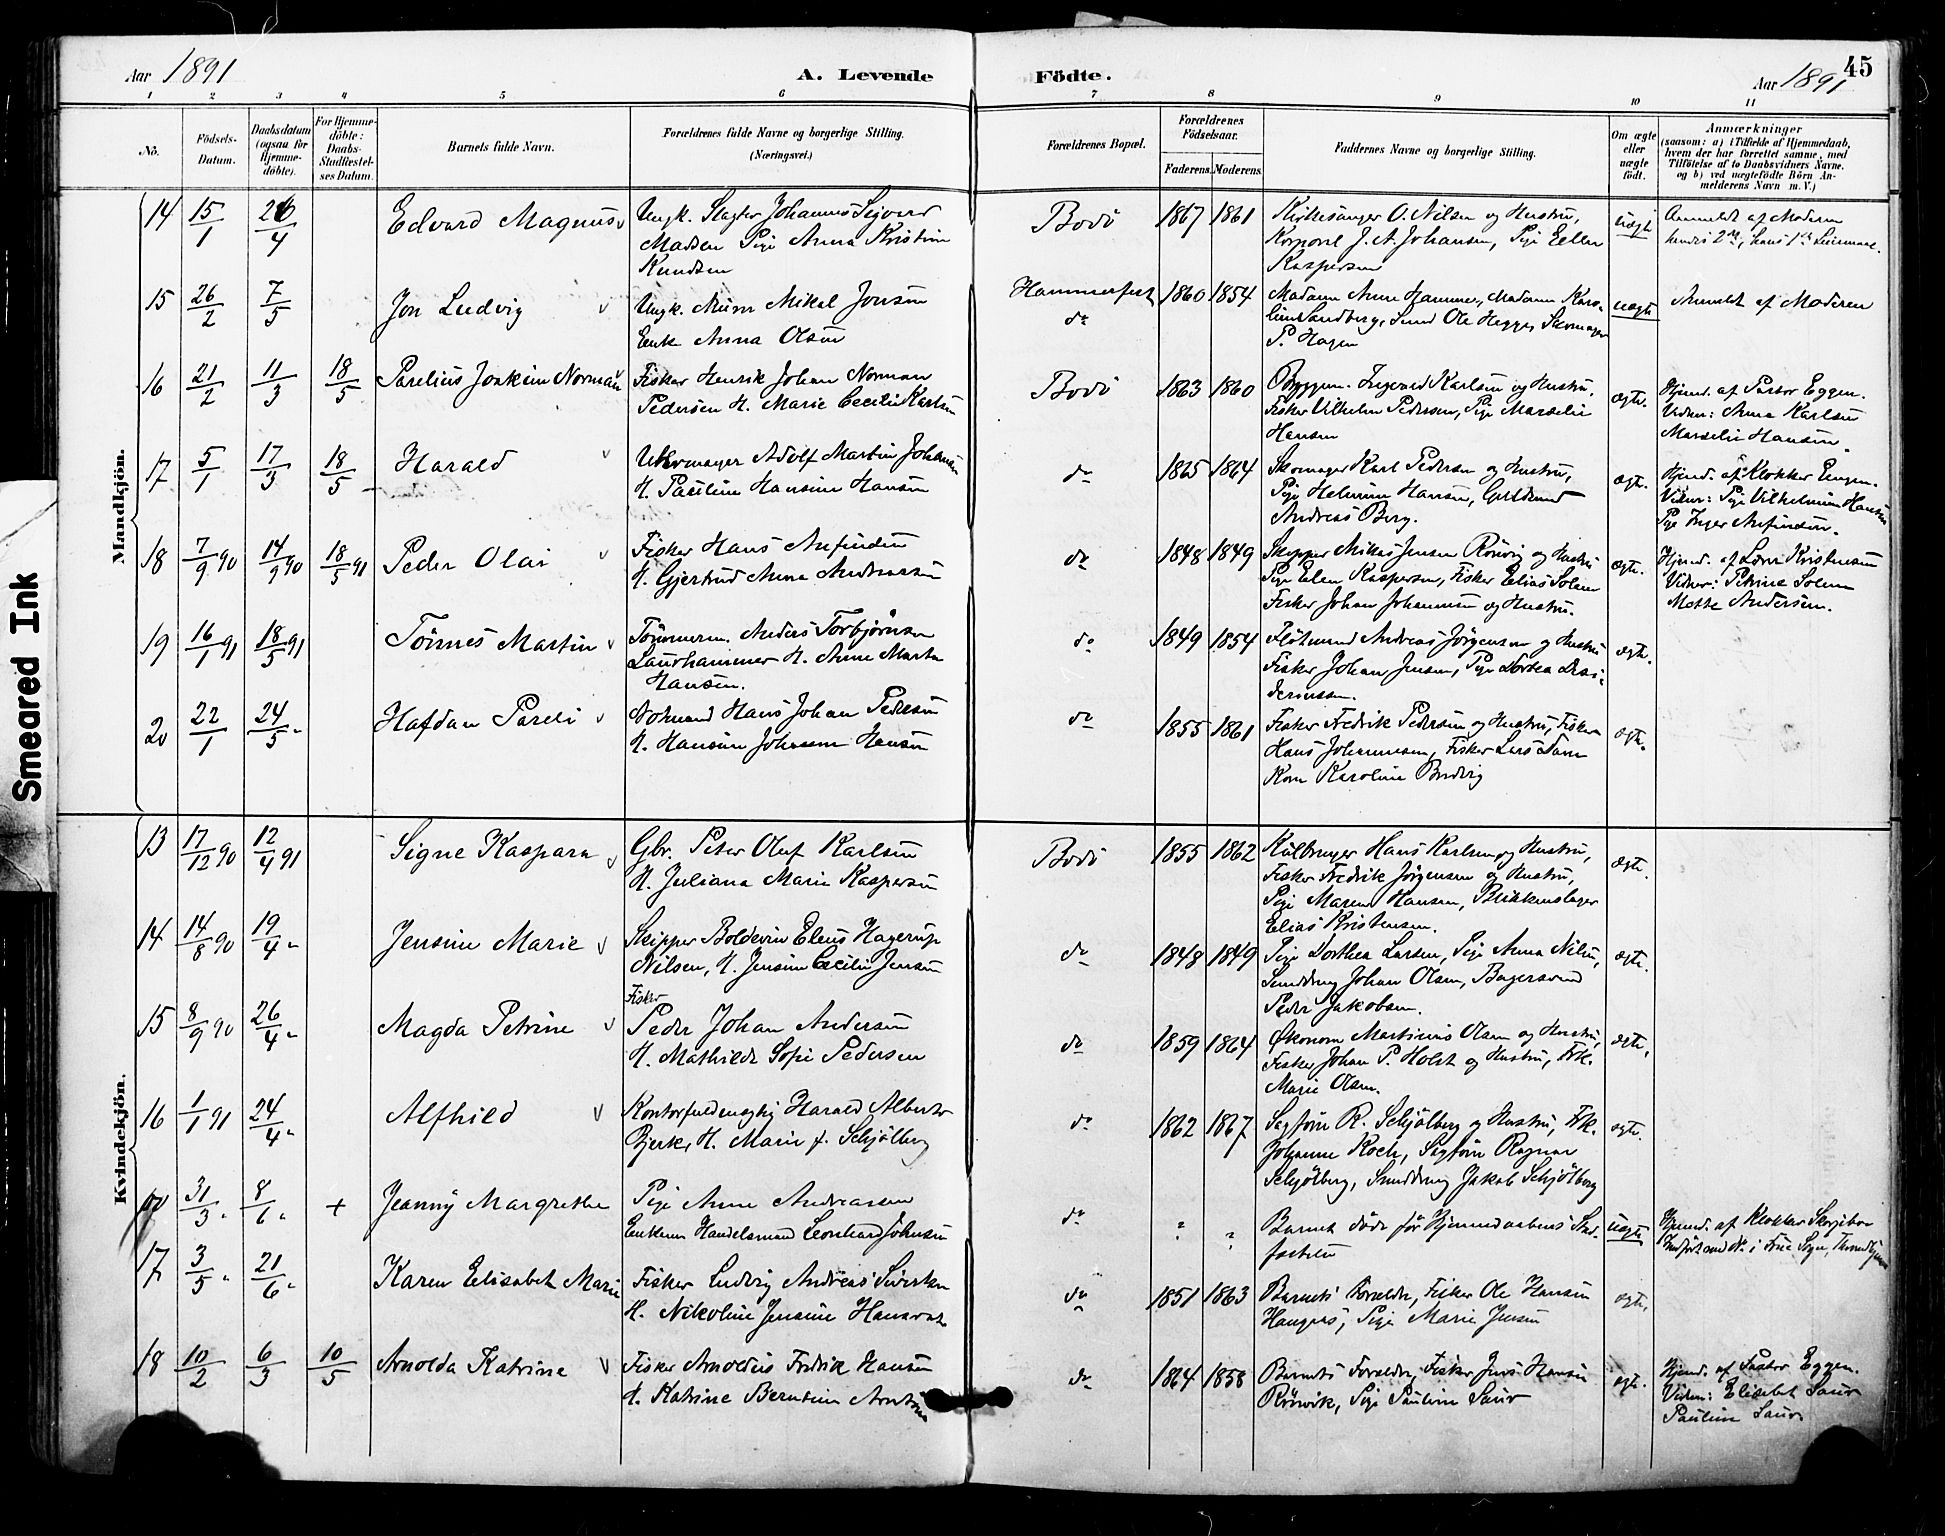 Aar 1891
A. Levende
Födte.
Aar 1891
45
1 2 3 4 5 6 7 8 9 10 11
No.
Födsels-Datum.
Daabsdatum (ogsaa for Hjemme-döbte).
For Hjemme-döbte: Daabs-Stadfæstel-ses Datum.
Barnets fulde Navn.
Forældrenes fulde Navne og borgerlige Stilling.
(Næringsvei.)
Forældrenes Bopæl.
Forældrenes Födselsaar.
Faderens. Moderens.
Faddernes Navne og borgerlige Stilling.
Om ægte eller uægte födt.
Anmærkninger
(saasom: a) i Tilfælde af Hjemmedaab,
hvem der har forrettet samme, med
Tilföielse af to Daabsvidners Navne,
og b) ved uægtefödte Börn An-
melderens Navn m. V.)
Smeared Ink
Mandkjön.
14 15/1 26/4 Edvard Magnus
Ungk. Slagter Johannes Sigvard
Madsen Pige Anna Kristine
Knudsen
Bodö 1867 1861
Kirkesanger O. Nilsen og Hustru,
Korporal J. A. Johansen, Pige Ellen
Kaspersen
uægte
Anmeldt af Moderen
hendes 2det, hans 1ste Leiermaal.
15 26/2 7/5 Jon Ludvig
Ungk. Murer Mikal Jonsen
Enke Anna Olsen
Hammerfest
do
1860 1854
Madam Anne Hammer, Madam Karo-
line Sandberg, Ole Hegge, Skomager
P. Hagen
uægte
Anmeldt af Moderen
16 21/2 11/3 18/5 Parelius Joakim Norman
Fisker Henrik Johan Norman
Pedersen H. Marie Cecilie Karlsen
Bodö 1863 1860
Ingvard Karlsen og Hustru,
Fisker Vilhelm Pedersen, Pige Marselie
Hansen
ægte.
Hjemd. af Pastor Eggen.
Vidner: Anna Karlsen
Marselie Hansen
17 5/1 17/3 18/5 Harald
Uhrmager Adolf Martin Johansen
H. Pauline Hansine Hansen
do 1865 1864
Skomager Karl Pedersen og Hustru,
Pige Helmine Hansen,
Andreas Berg.
ægte.
Hjemd. af Klokker Engen.
Vidner: Pige Vilhelmine Hansen
Pige Inger Anfindsen.
18 7/9 90 14/9 90 18/5 91 Peder Olai
Fisker Hans Anfindsen
H. Gjertrud Anna Andreasen
do 1848 1849
Skipper Mikal Jensen Rönvig og Hustru
Pige Elen Kaspersen, Fisker Elias Solem
Fisker Johan Johannesen og Hustru.
ægte.
Hjemd. af Lars Kristensen
Vidner: Petrine Solem
Mette Andersen.
19 16/1 91 18/5 91 Tönnes Martin
Tömmerm. Anders Torbjørnsen
Laurhammer H. Anne Marta
Hansen.
do 1849 1854
Andreas Jörgensen og Hustru
Fisker Johan Jensen, Pige Dortea Desi-
deriussen.
ægte.
20 22/1 24/5 " Hafdan Pareli
Hans Johan Pedersen
H. Hansine Johanna Hansen
do 1855 1861
Fisker Fredrik Pedersen og Hustru, Fisker
Hans Johannesen, Fisker Lars
Kone Karoline Bredvig
ægte.
Kvindekjön.
13 17/12 90 12/4 91 Signe Kaspara
Gbr. Peter Oluf Karlsen
H. Juliana Marie Kaspersen
Bodö 1855 1862
Hans Karlsen og Hustru,
Fisker Fredrik Jörgensen og Hustru,
Pige Maren Hansen, Blikkenslager
Elias Kristensen.
ægte.
14 14/8 90 19/4 " Jensine Marie
Skipper Boldevin Eleus Hagerup
Nilsen, H. Jensine Cecilie Jensen
do 1848 1849
Pige Dorthea Larsen, Pige Anna Nilsen,
Smeddreng Johan Olsen, Bagersvend
Peder Jakobsen.
ægte.
15 8/9 90 26/4 " Magda Petrine
Fisker
Peder Johan Andersen
H. Mathilde Sofie Pedersen
do 1859 1864
Økonom Martinius Olsen og Hustru,
Fisker Johan P. Holst og Hustru, Frk.
Marie Olsen.
ægte.
16 1/1 91 24/4 " Alfhild
Kontorfuldmægtig Harald Alberto
Bjerke, H. Marie f. Schjölberg
do 1862 1867
Sagförer R. Schjölberg og Hustru, Frk.
Johanne Koch, Sagförer Ragnar
Schjölberg, Smeddreng Jakob Schjölberg
ægte.
31/3 " 8/6 " + Jeanny Margrethe
Pige Anne Andreasen
Enkem. Handelsmand Leonhard Johnsen
do ? ?
Barnet döde för Hjemmedaabens Stad-
fæstelse
uægte
Hjemd. af Klokker
i Frue Sogn, Throndhjem
17 3/5 " 21/6 " Karen Elisabet Marie
Fisker Ludvig Andreas Sivertsen
H. Nikoline Jensine
do 1851 1863
Barnets Forældre, Fisker Ole Hansen
Haugnes, Pige Marie Jensen
ægte.
18 10/2 6/3 10/5 Arnolda Katrine
Fisker Arnoldus Fredrik Hansen
H. Katrine Berntine Arntsen
do 1864 1858
Barnets Forældre, Fisker Jens Hansen
Rönvik, Pige Pauline Saur
ægte.
Hjemd. af Pastor Eggen.
Vidner: Elisabet Saur
Pauline Saur